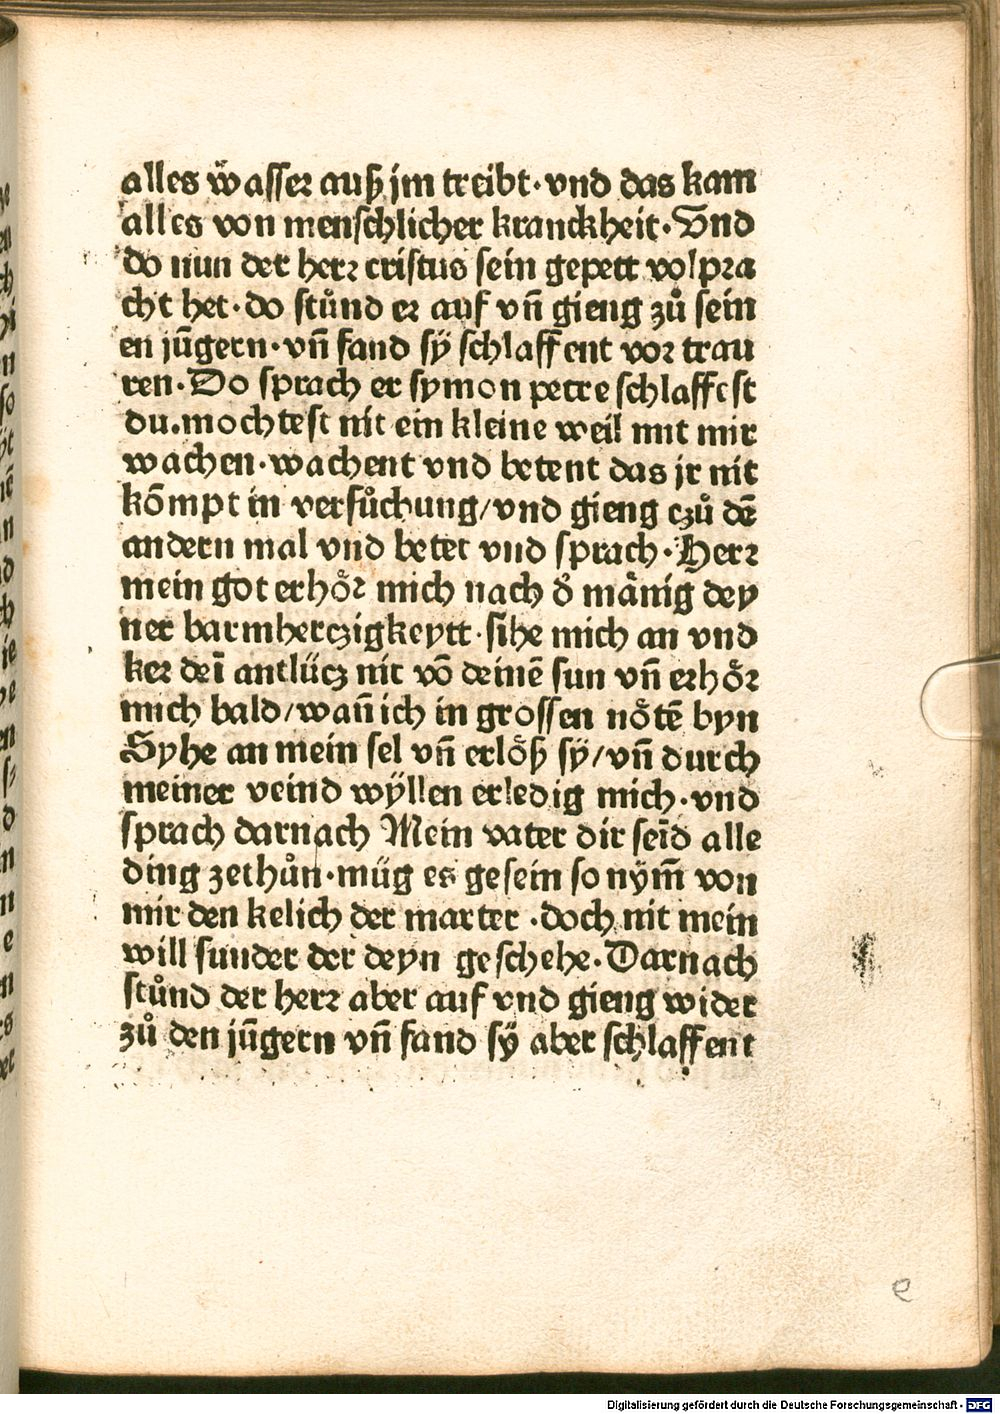 alles ẅasser auß jm treibt·vnd das kam
alles von menschlicher kranckheit·Vnd
do nun der herr cristus sein gepett volpra
cht het·do stůnd er auf vñ gieng zů sein
en jūgern·vñ fand sÿ schlaffent vor trau
ren·Do sprach er symon petre schlaffest
du.mochtest nit ein kleine weil mit mir
wachen·wachent vnd betent das jr nit
kōmpt in versůchung/vnd gieng czů dē
andern mal vnd betet vnd sprach·Herr
mein got erhoͤr mich nach d̕ mänig dey
ner barmherczigkeytt·sihe mich an vnd
ker deī antlücz nit vō deinē sun vñ erhoͤr
mich bald/wañ ich in grossen noͤtē byn
Syhe an mein sel vñ erloͤß sÿ/vñ durch
meiner veind wÿllen erledig mich·vnd
sprach darnach Mein vater dir seīd alle
ding zethůn·müg es gesein so nÿm̄ von
mir den kelich der marter·doch nit mein
will sunder der deyn geschehe·Darnach
stůnd der herr aber auf vnd gieng wider
zů den jūgern vñ fand sÿ aber schlaffent
e
Digitalisierung gefördert durch die Deutsche Forschungsgemeinschaft - DFG